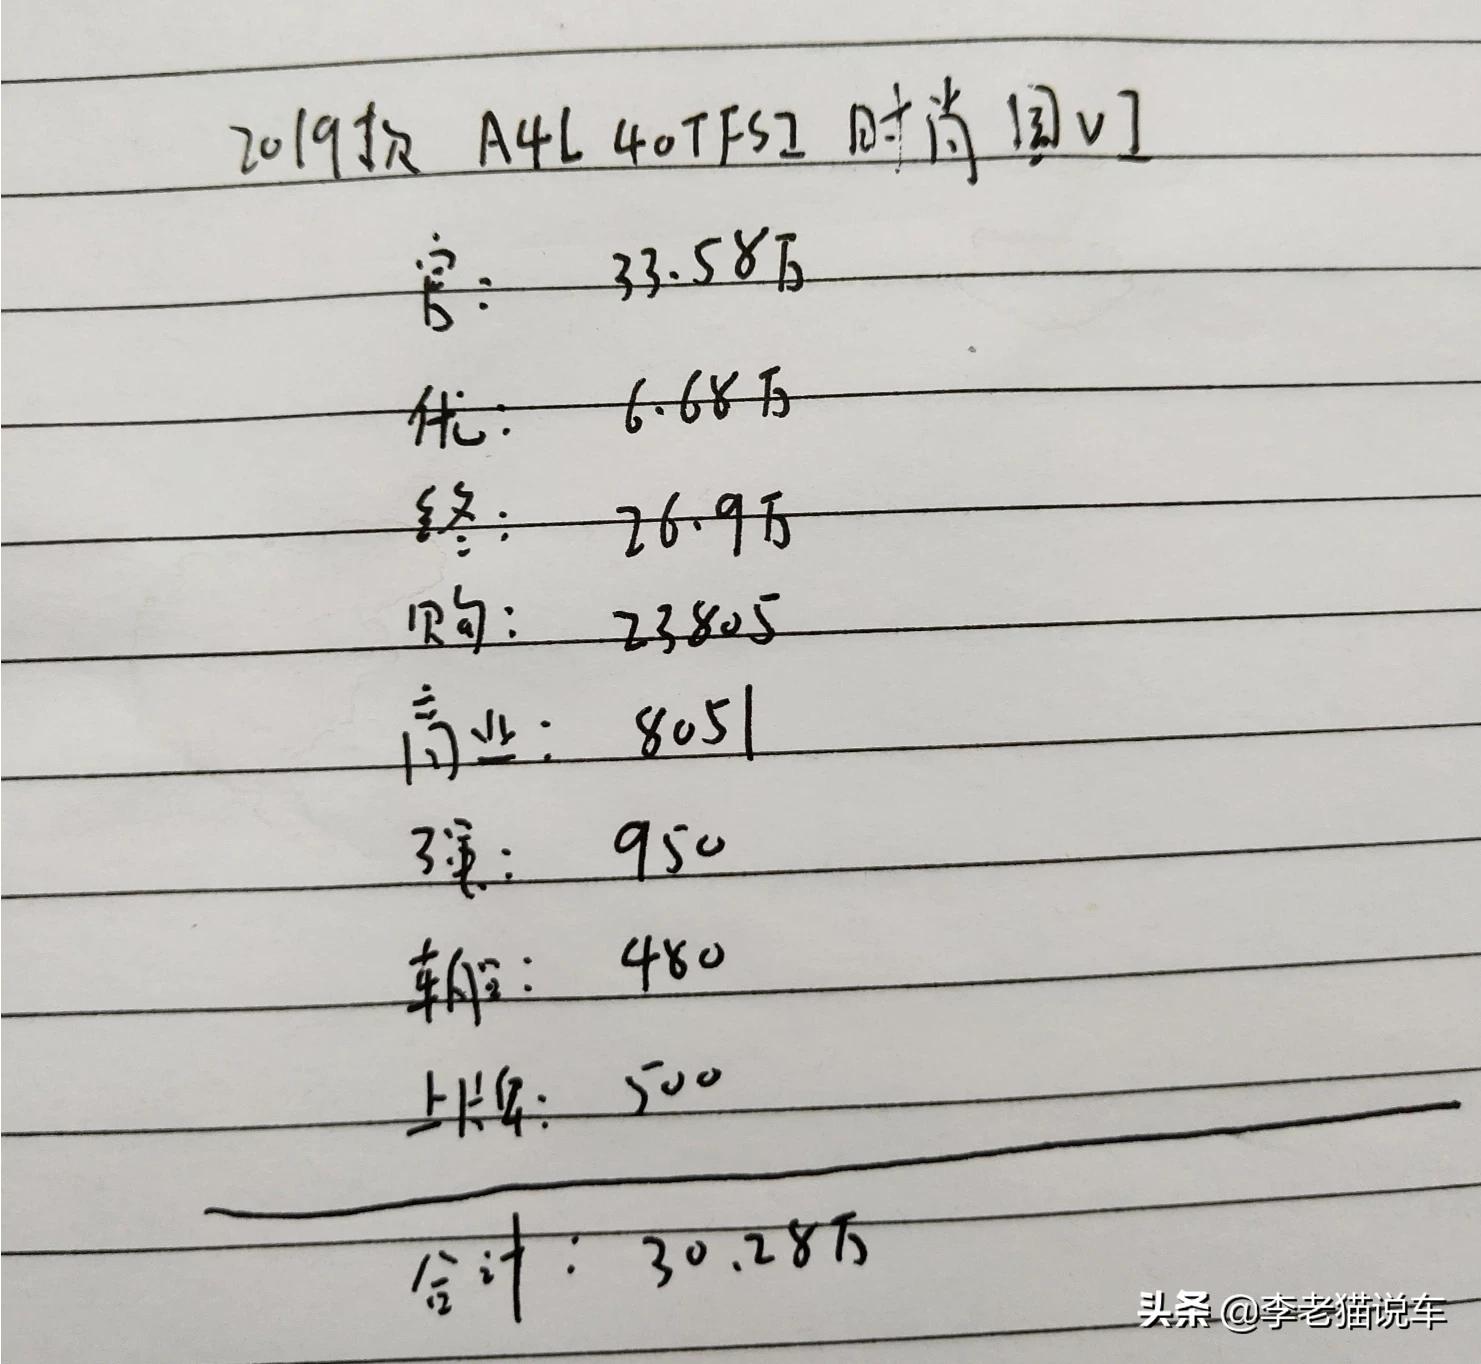 2019款 A4L 40TFSI 时尚 国VI
官: 33.58万
优: 6.68万
终: 26.9万
购: 23805
商业: 8051
强: 950
车船: 480
上牌: 500
合计: 30.28万
头条 @李老猫说车